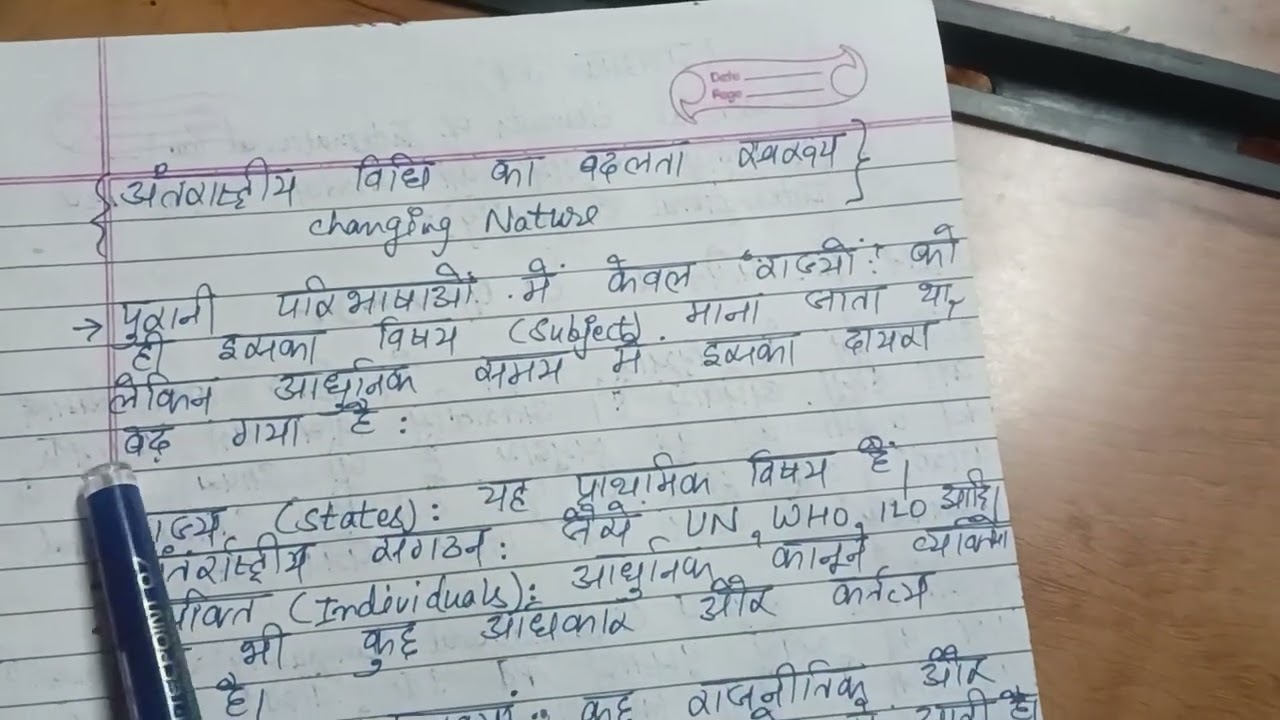 Date
Page
{अंतर्राष्ट्रीय विधि का बदलता स्वरूप}
changing Nature
→ पुरानी परिभाषाओं में केवल "राज्यों" को
ही इसका विषय (Subject) माना जाता था,
लेकिन आधुनिक समय में इसका दायरा
बढ़ गया है :
राज्य (States): यह प्राथमिक विषय है।
अंतर्राष्ट्रीय संगठन: जैसे UN, WHO, ILO आदि।
(Individuals): आधुनिक कानून
भी कुछ अधिकार और कर्तव्य
है।
कुछ राजनीतिक और